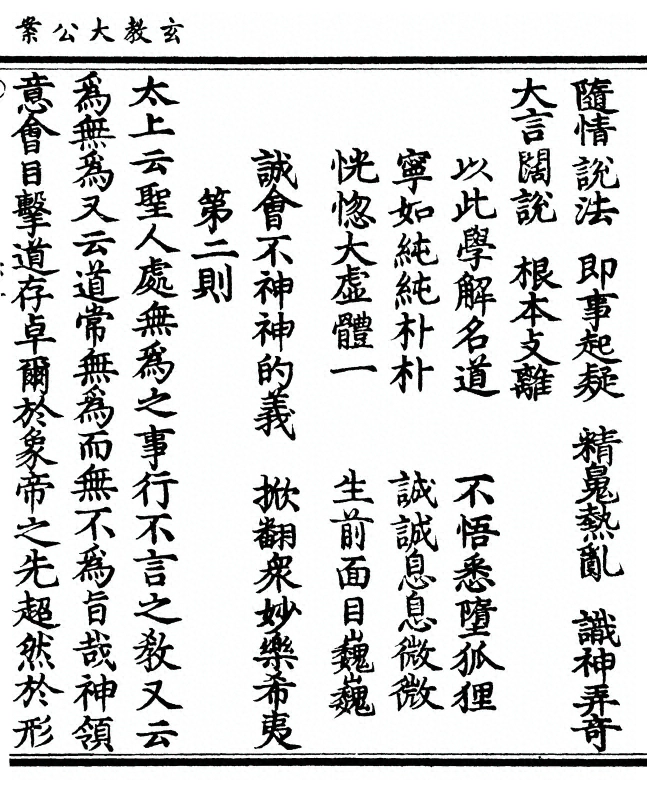 玄教大公案
隨情說法　即事起疑　精䰟熱亂　識神弄奇
大言闊說　根本支離
以此學解名道　不悟悉墮狐狸
寧如純純朴朴　誠誠息息微微
恍惚大虛體一　生前面目巍巍
誠會不神神的義　掀翻衆妙樂希夷
第二則
太上云聖人處無爲之事行不言之教又云
爲無爲又云道常無爲而無不爲旨哉神領
意會目擊道存卓爾於象帝之先超然於形